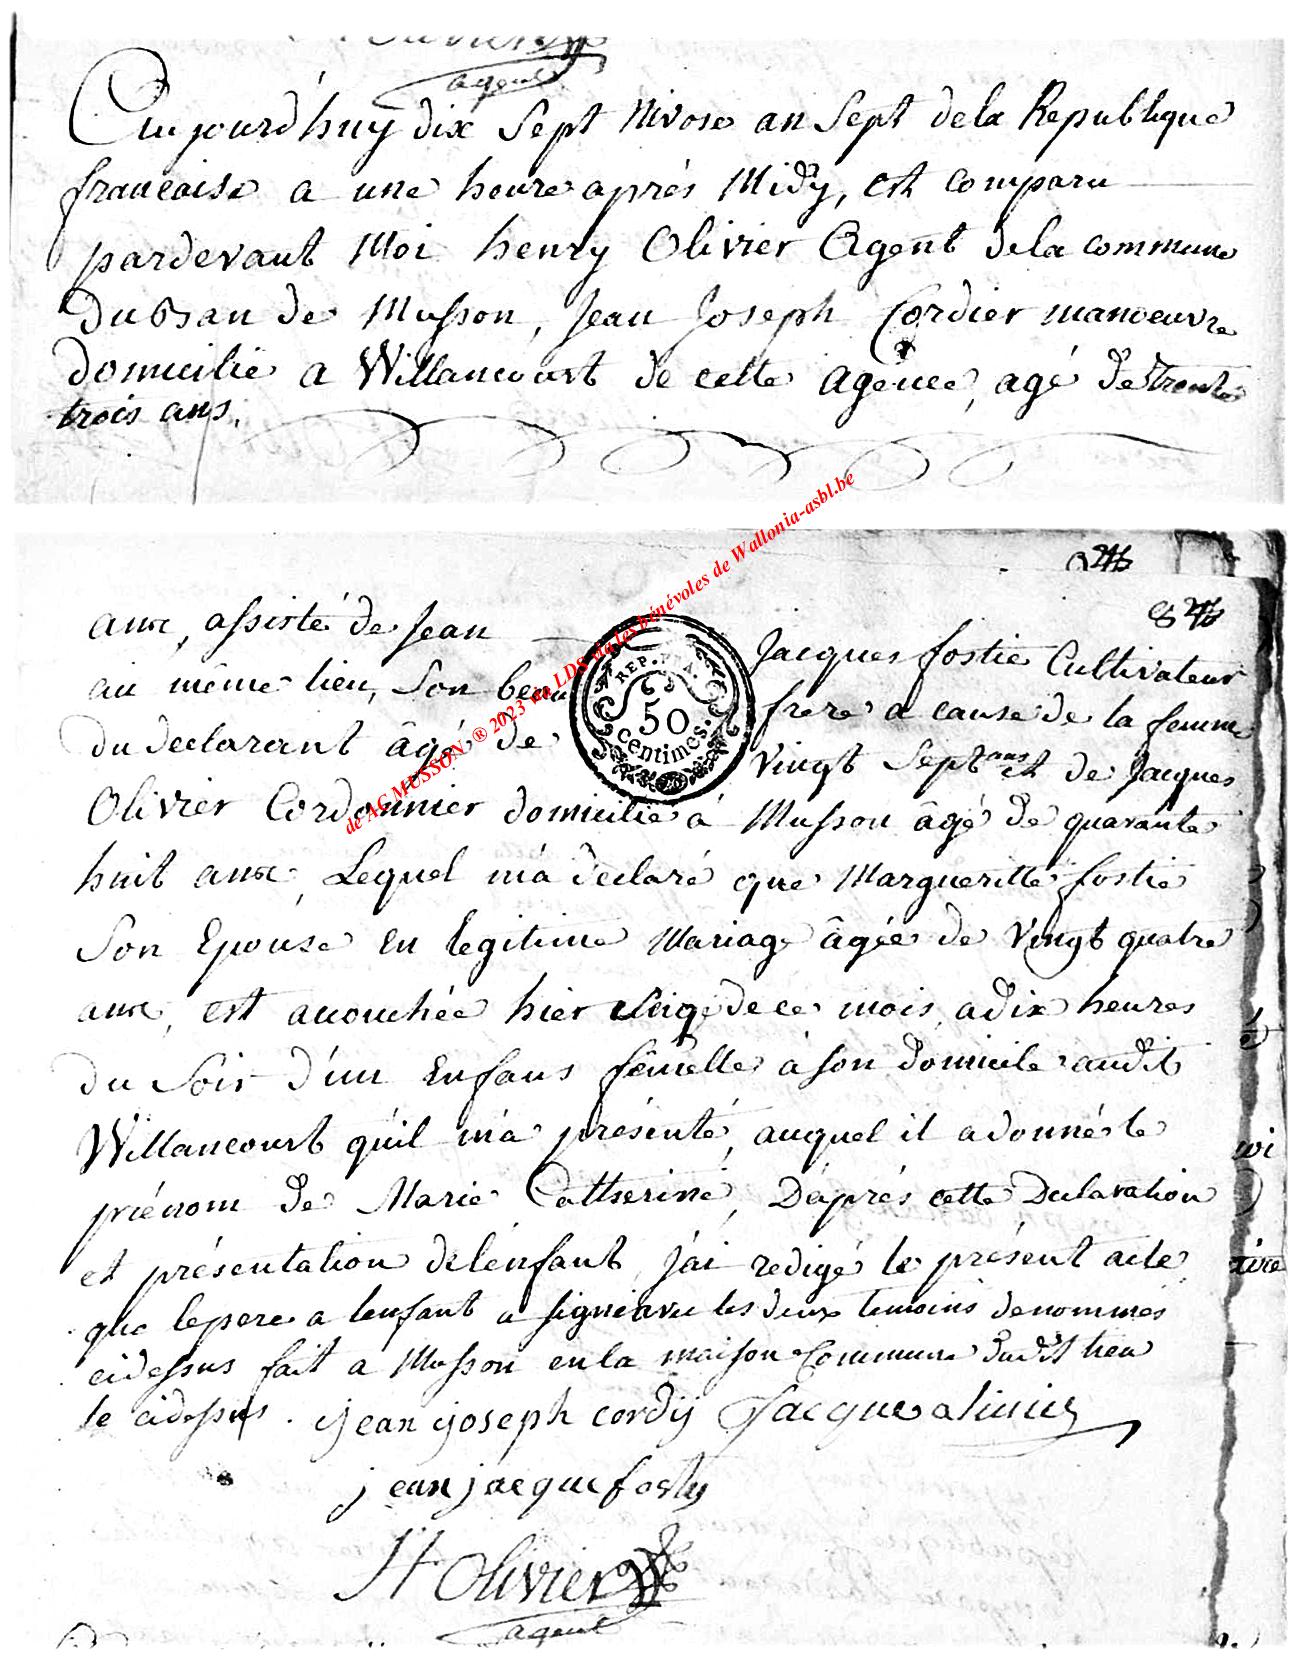 agent
Aujourd'huy dix Sept Nivose an Sept de la Republique
francaise a une heure aprés Midy, est comparu
pardevant Moi henry Olivier Agent de la commune
du Ban de Musson, Jean Joseph Cordier manoeuvre
domicilié a Willancourt de cette agence, agé de trente
trois ans.
ans, assisté de Jean Jacques fostie Cultivateur
au même lieu, Son beau frere a cause de la femme
du declarant âgé de vingt Sept ans et de Jacques
Olivier Cordonnier domicilié à Musson âgé de quarante
huit ans, Lequel m'a declaré que Margueritte fostie
Son Epouse en legitime Mariage âgée de Vingt quatre
ans, est acouchée hier Seize de ce mois, a dix heures
du Soir d'un Enfans fêmelle à son domicile audit
Willancourt qu'il m'a présenté, auquel il a donné le
prénom de Marie Catherine, D'aprés cette Declaration
et présentation de l'enfant, j'ai redigé le présent acte
que le pere a lenfant a signé avec les deux temoins denommés
cidessus fait a Musson en la maison Commune dudit lieu
le cidessus. jean joseph cordij Jacque alivier
jean jacque fosty
H Olivier
agent
REP. FRA.
50
centimes.
de AC MUSSON ® 2023 via LDS via les bénévoles de Wallonia-asbl.be